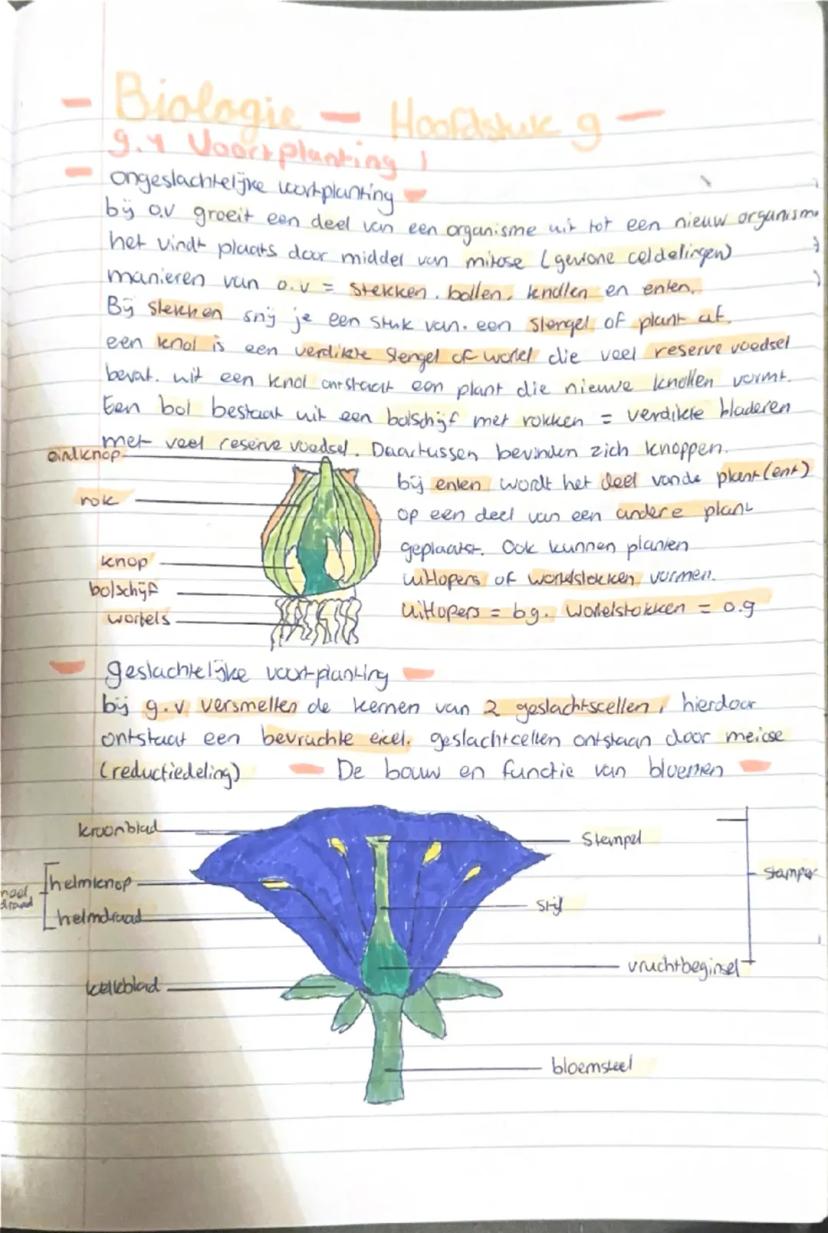 Biologie — Hoofdstuk 9 —
9.4 Voortplanting 1
ongeslachtelijke voortplanting
bij o.v groeit een deel van een organisme uit tot een nieuw organism
het vindt plaats door middel van mitose (gewone celdelingen)
manieren van o.v = stekken, bollen, knollen en enten.
Bij stekken snij je een stuk van een stengel of plant af.
een knol is een verdikte stengel of wortel die veel reserve voedsel
bevat. uit een knol ontstaat een plant die nieuwe knollen vormt.
Een bol bestaat uit een bolschijf met rokken = verdikte bladeren
met veel reserve voedsel. Daartussen bevinden zich knoppen.
eindknop
rok
knop
bolschijf
wortels
bij enten wordt het deel van de plant (ent)
op een deel van een andere plant
geplaatst. Ook kunnen planten
uitlopers of wortelstokken vormen.
Uitlopers = bg. Wortelstokken = o.g
geslachtelijke voortplanting
bij g.v. versmelten de kernen van 2 geslachtscellen, hierdoor
ontstaat een bevruchte eicel. geslachtcellen ontstaan door meiose
(reductiedeling) — De bouw en functie van bloemen —
kroonblad
helmknop
helmdraad
kelkblad
stempel
stijl
vruchtbeginsel
stamper
bloemsteel